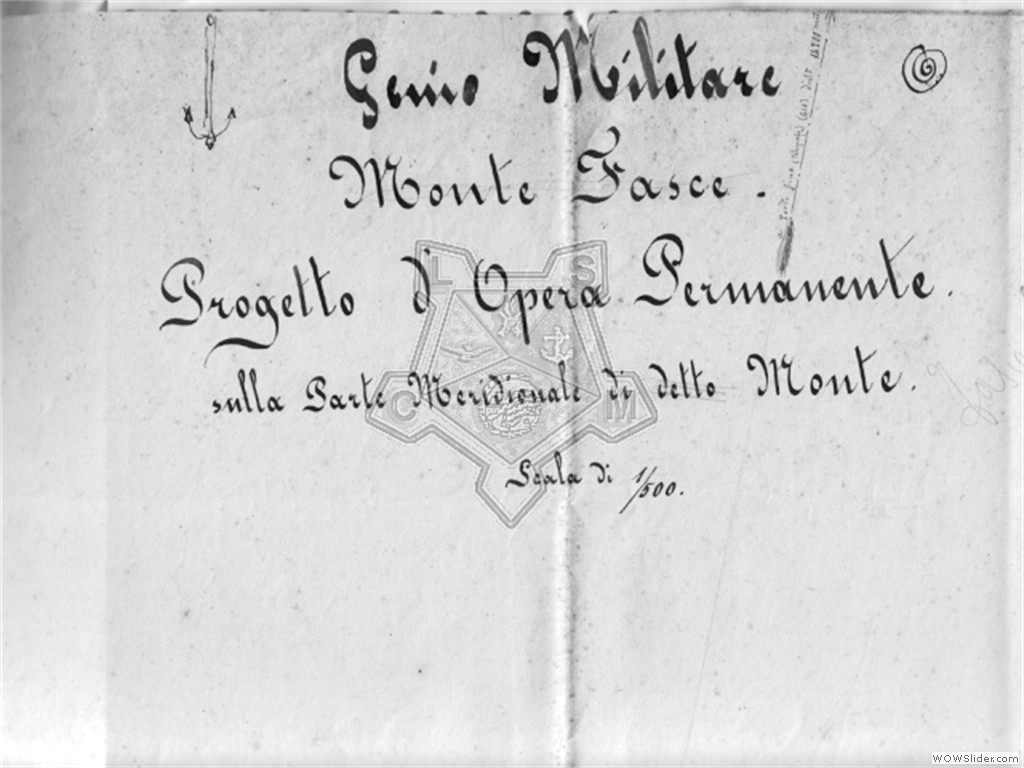 Genio Militare
Monte Fasce.
Progetto di Opera Permanente.
sulla Parte Meridionale di detto Monte.
Scala di 1/500.
L S
C M
WOWSlider.com